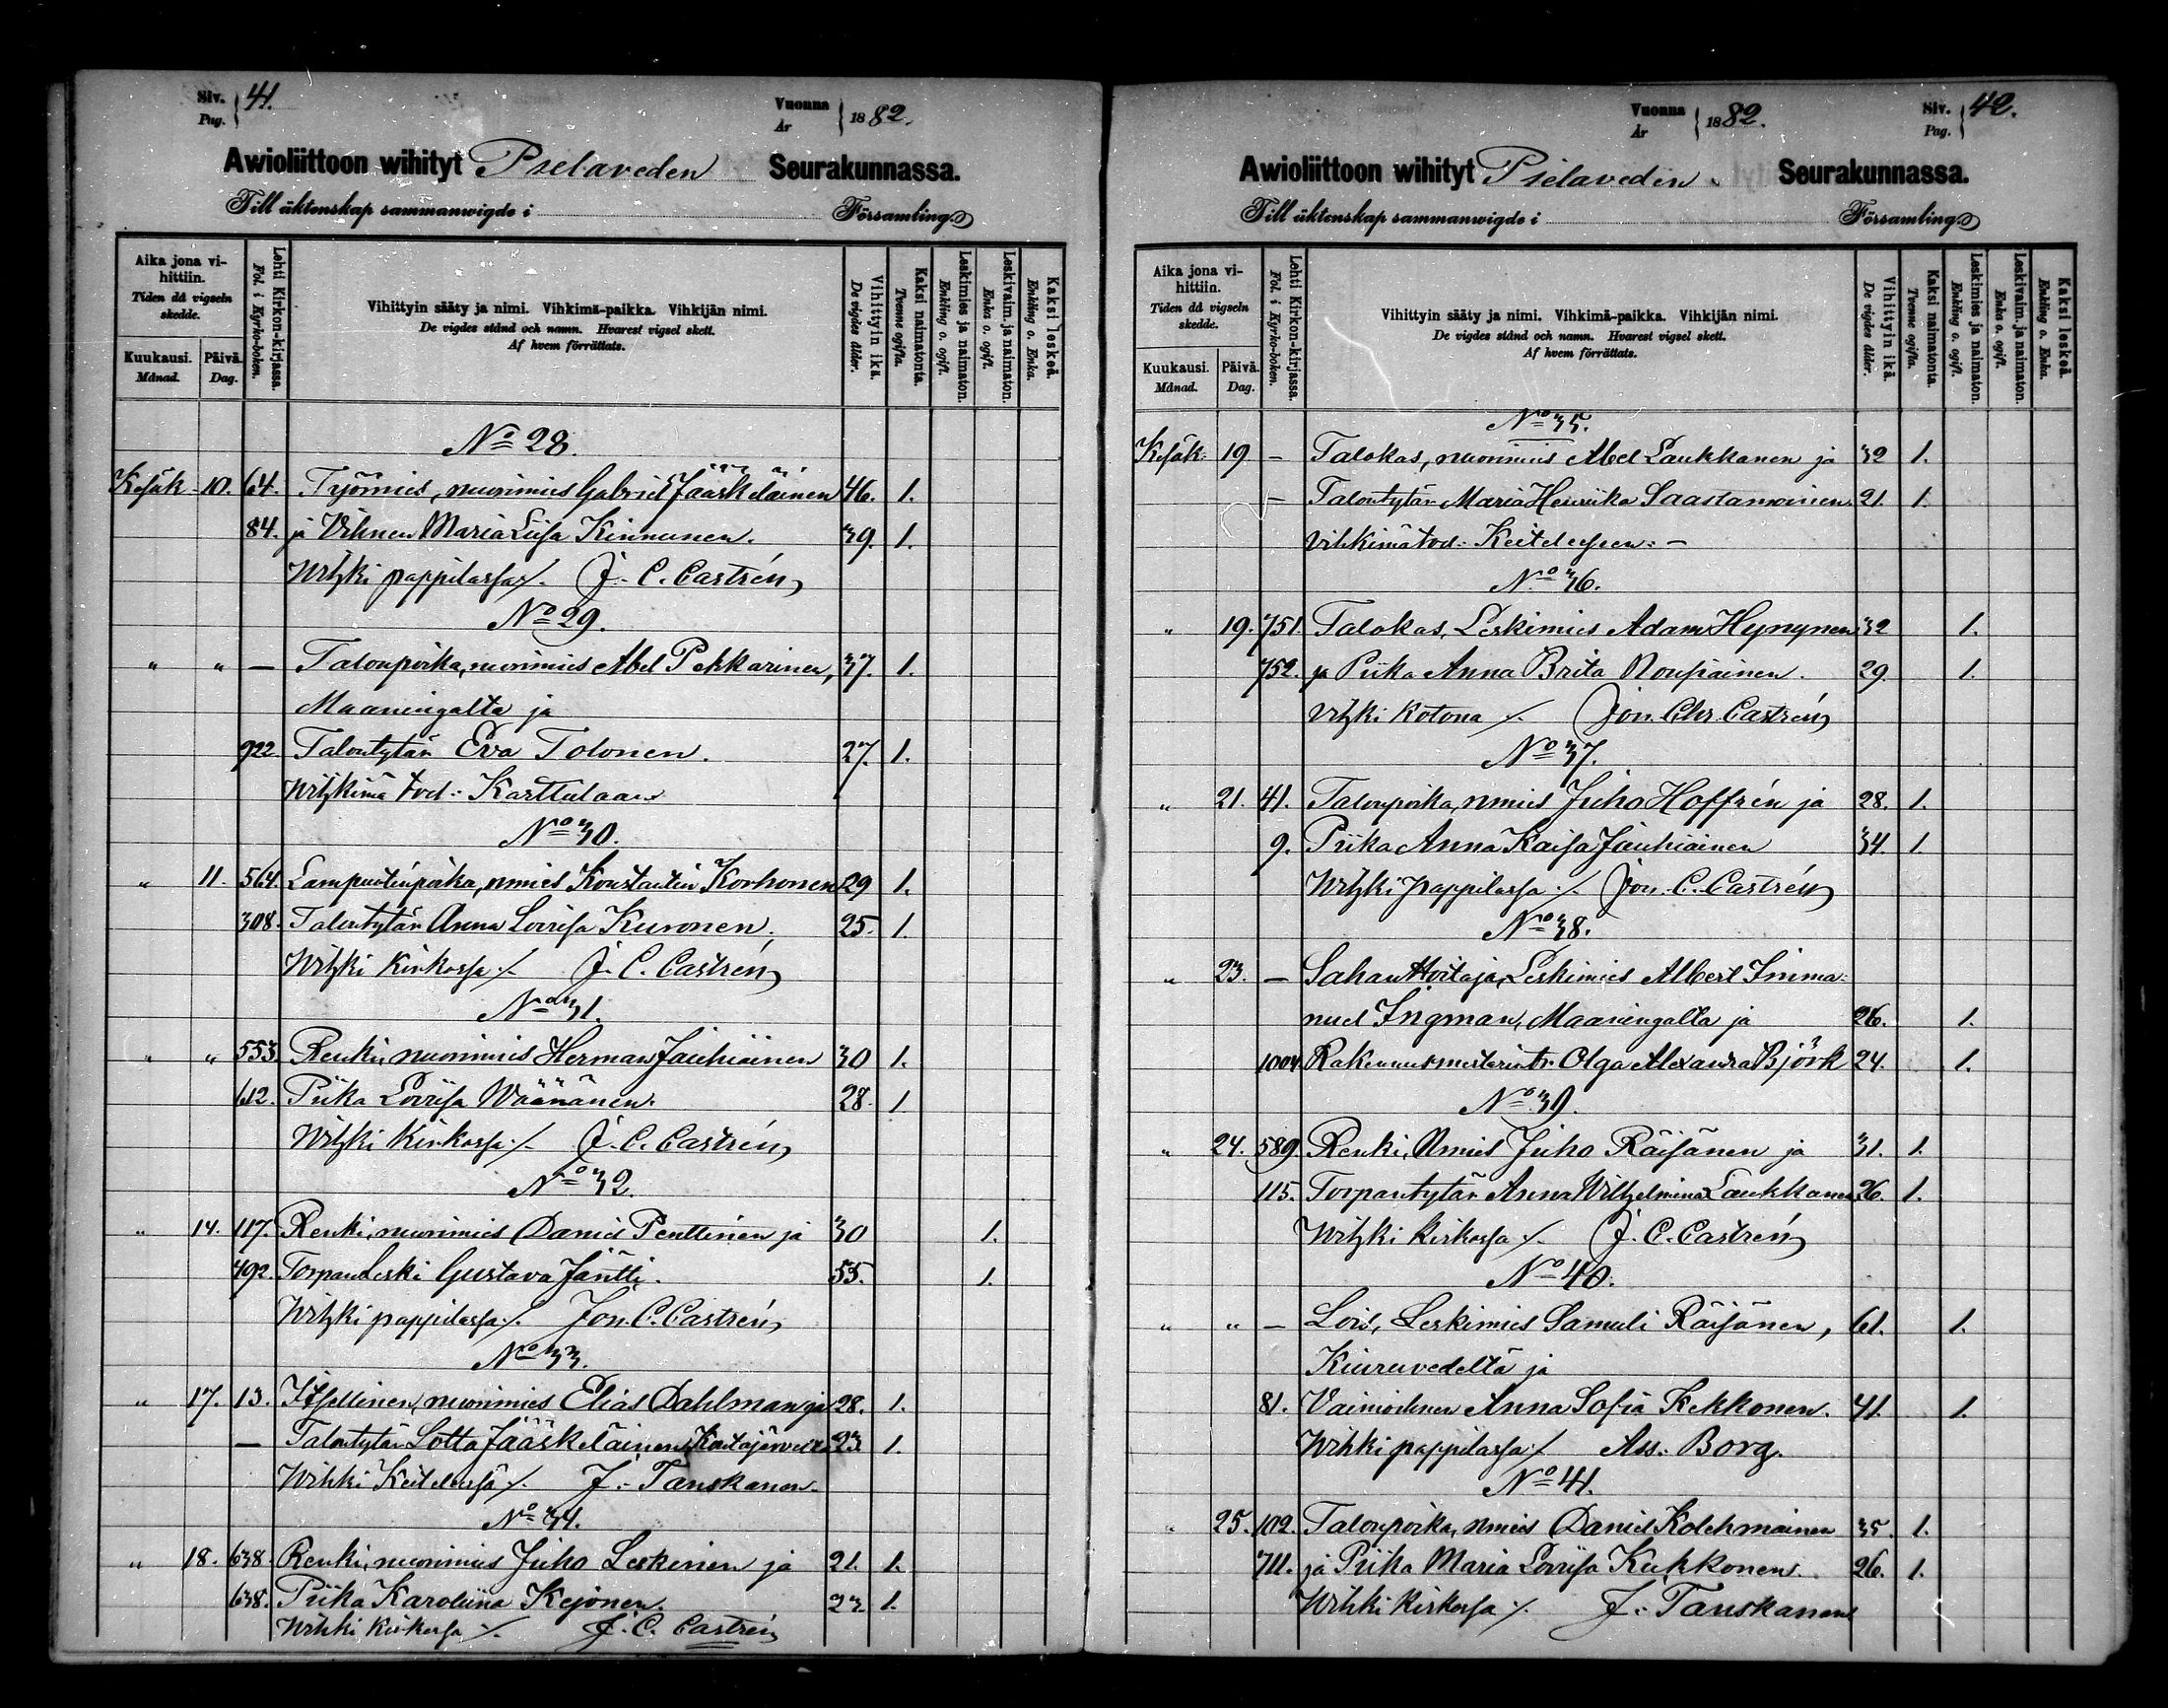 Siv. Pag. 41.
Vuonna År 1882.
Awioliittoon wihityt Pielaveden Seurakunnassa.
Till äktenskap sammanwigde i Församling.
Aika jona vihittiin.
Tiden då vigseln skedde.
Kuukausi. Månad.
Päivä. Dag.
Lehti Kirkon-kirjassa. Fol. i Kyrko-boken.
Vihittyin sääty ja nimi. Vihkimä-paikka. Vihkijän nimi.
De vigdes stånd och namn. Hvarest vigsel skett.
Af hvem förrättats.
Vihittyin ikä. De vigdes ålder.
Kaksi naimatonta. Tvenne ogifta.
Leskimies ja naimaton. Enkling o. ogift.
Leskivaim. ja naimaton. Enka o. ogift.
Kaksi leskeä. Enkling o. Enka.
No 28.
Kesäk. 10. 64. Työmies, nuorimies Gabriel Jääskeläinen 46. 1.
84. ja Vihnen Maria Liisa Kinnunen. 39. 1.
Wihki pappilassa ./. J. C. Castrén
No 29.
" " — Talonpoika, nuorimies Abel Pekkarinen, 37. 1.
Maaningalta ja
922. Talontytär Eva Tolonen. 27. 1.
Wihkimä tod: Karttulaan
No 30.
" 11. 564. Lampuotinpoika, nmies Konstantin Korhonen 29 1.
308. Talontytär Anna Lovisa Kuronen. 25. 1.
Wihki Kirkossa ./. J. C. Castrén
No 31.
" " 553. Renki, nuorimies Herman Jauhiainen 30 1.
612. Piika Loviisa Wäänänen. 28. 1.
Wihki Kirkossa ./. J. C. Castrén
No 32.
" 14. 117. Renki, nuorimies Daniel Penttinen ja 30 1.
492. Torpanleski Gustava Jäntti. 55. 1.
Wihki pappilassa ./. Jon. C. Castrén
No 33.
" 17. 13. Itsellinen, nuorimies Elias Dahlman ja 28. 1.
— Talontytär Lotta Jääskeläinen 23. 1.
Wihki Keiteleessä ./. J. Tanskanen.
No 34.
" 18. 638. Renki, nuorimies Juho Leskinen ja 21. 1.
638. Piika Karoliina Kejonen. 23. 1.
Wihki Kirkossa ./. J. C. Castrén
Vuonna År 1882.
Siv. Pag. 42.
Awioliittoon wihityt Pielaveden Seurakunnassa.
Till äktenskap sammanwigde i Församling.
Aika jona vihittiin.
Tiden då vigseln skedde.
Kuukausi. Månad.
Päivä. Dag.
Lehti Kirkon-kirjassa. Fol. i Kyrko-boken.
Vihittyin sääty ja nimi. Vihkimä-paikka. Vihkijän nimi.
De vigdes stånd och namn. Hvarest vigsel skett.
Af hvem förrättats.
Vihittyin ikä. De vigdes ålder.
Kaksi naimatonta. Tvenne ogifta.
Leskimies ja naimaton. Enkling o. ogift.
Leskivaim. ja naimaton. Enka o. ogift.
Kaksi leskeä. Enkling o. Enka.
No 35.
Kesäk: 19 — Talokas, nuorimies Abel Laukkanen ja 32 1.
— Talontytär Maria Henriika Saastamoinen. 21. 1.
Vihkimätod: Keiteleesen: —
No 36.
" 19. 751. Talokas, Leskimies Adam Hynynen 32 1.
752. ja Piika Anna Brita Noupiainen. 29. 1.
Vihki Kotona ./. Jon. Chr. Castrén
No 37.
" 21. 41. Talonpoika, nmies Juho Hoffrén ja 28. 1.
9. Piika Anna Kaisa Jauhiainen 34. 1.
Wihki pappilassa ./. Jon. C. Castrén
No 38.
" 23. — Sahanhoitaja, Leskimies Albert Imma-
nuel Ingman, Maaningalta ja 26. 1.
1004. Rakennusmesterintr. Olga Alexandra Björk 24. 1.
No 39.
" 24. 589. Renki, Nmies Juho Räisänen ja 31. 1.
115. Torpantytär Anna Wilhelmina Laukkanen 26. 1.
Wihki Kirkossa ./. J. C. Castrén
No 40.
" " — Lois, Leskimies Samuli Räisänen, 61. 1.
Kiuruvedeltä ja
81. Anna Sofia Kekkonen. 41. 1.
Wihki pappilassa ./. Ass: Borg.
No 41.
" 25. 102. Talonpoika, nmies Daniel Kolehmainen 35. 1.
711. ja Piika Maria Loviisa Kukkonen. 26. 1.
Wihki Kirkossa ./. J. Tanskanen